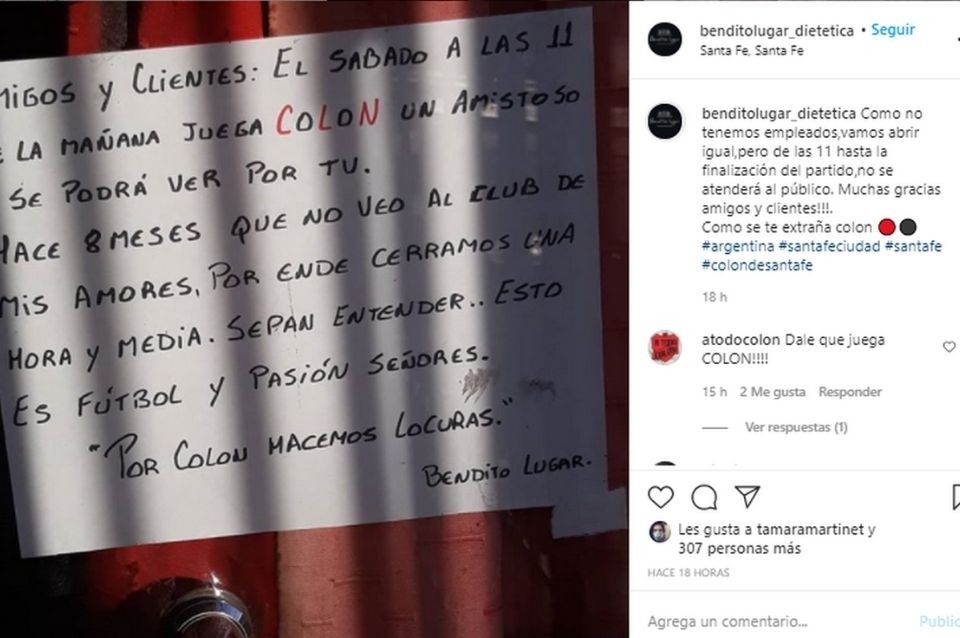 MIGOS Y CLIENTES: EL SABADO A LAS 11
E LA MAÑANA JUEGA COLON UN AMISTOSO
SE PODRÁ VER POR TV.
HACE 8 MESES QUE NO VEO AL CLUB DE
MIS AMORES, POR ENDE CERRAMOS UNA
HORA Y MEDIA. SEPAN ENTENDER.. ESTO
ES FÚTBOL Y PASIÓN SEÑORES.
"POR COLON HACEMOS LOCURAS."
BENDITO LUGAR.
benditolugar_dietetica • Seguir
Santa Fe, Santa Fe
benditolugar_dietetica Como no
tenemos empleados,vamos abrir
igual,pero de las 11 hasta la
finalización del partido,no se
atenderá al público. Muchas gracias
amigos y clientes!!!.
Como se te extraña colon 🔴⚫
#argentina #santafeciudad #santafe
#colondesantafe
18 h
atodocolon Dale que juega
COLON!!!!
15 h 2 Me gusta Responder
Ver respuestas (1)
Les gusta a tamaramartinet y
307 personas más
HACE 18 HORAS
Agrega un comentario... Public